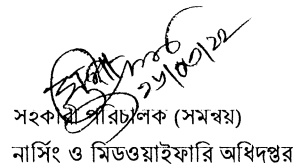 ২৬/০৩/২২
সহকারী পরিচালক (সমন্বয়)
নার্সিং ও মিডওয়াইফারি অধিদপ্তর